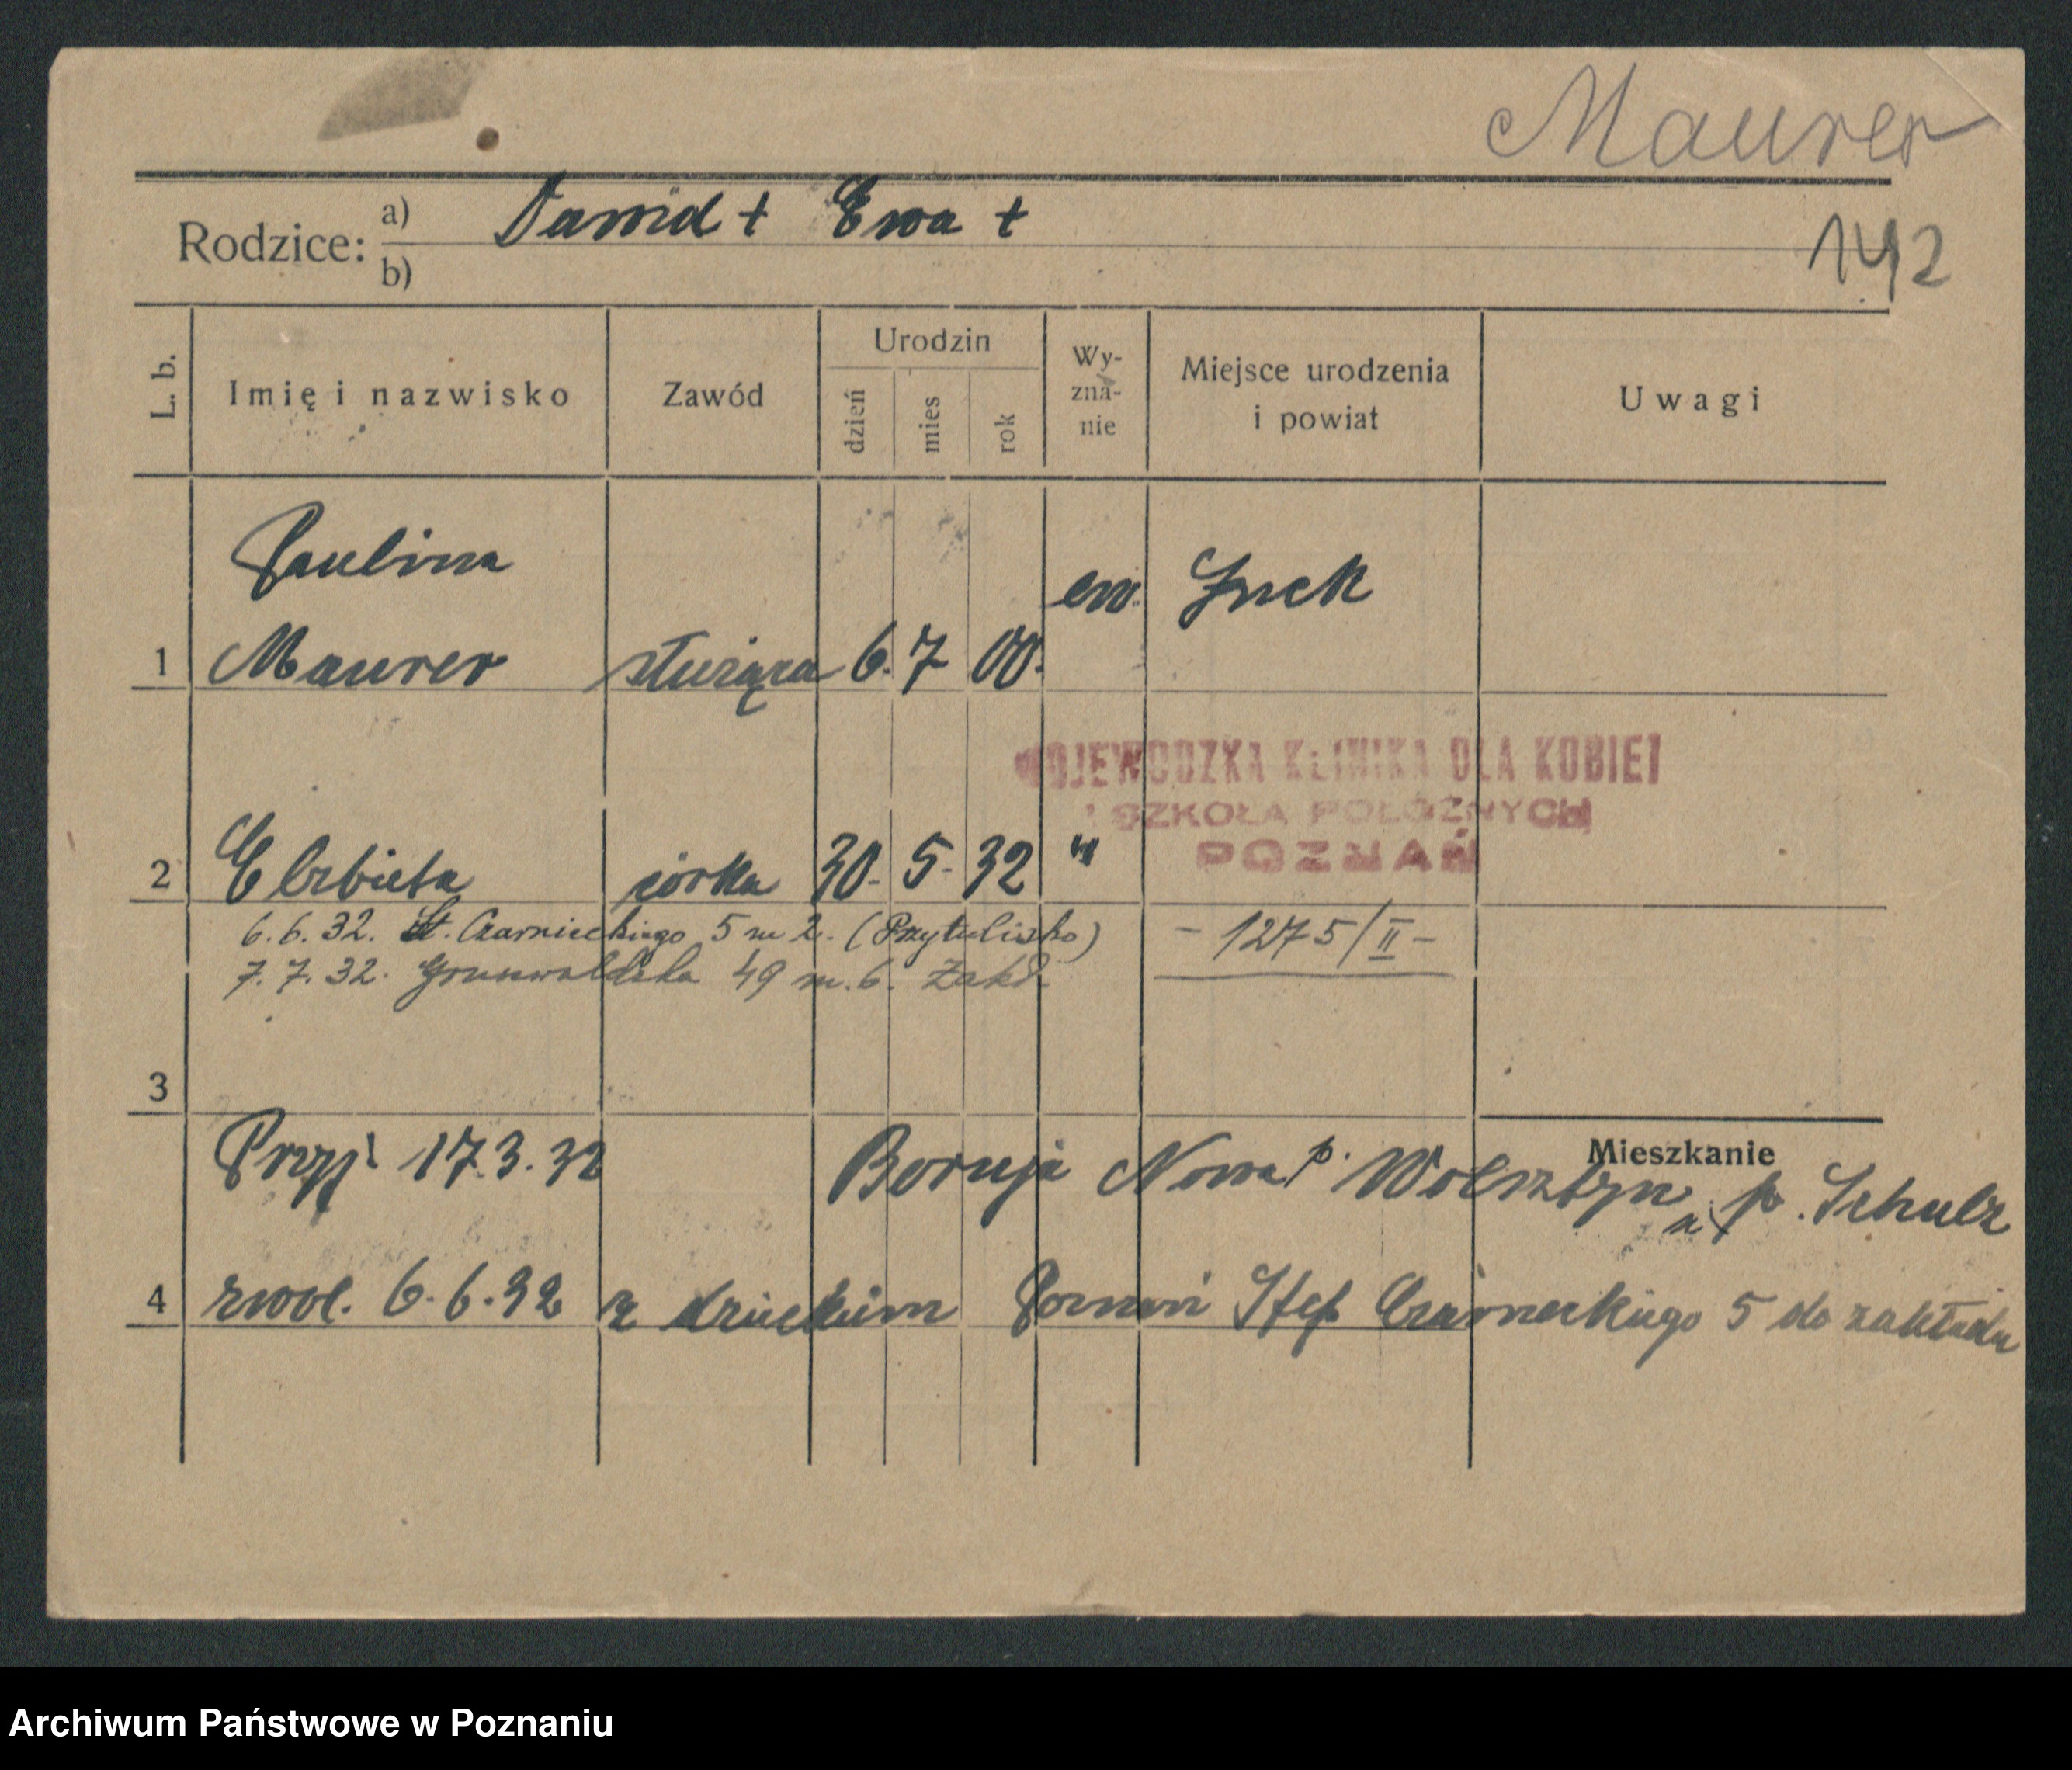 Maurer
Rodzice: a) Dawid + Ewa +
b)
142
L. b. Imię i nazwisko Zawód Urodzin dzień mies rok Wy-zna-nie Miejsce urodzenia i powiat Uwagi
Paulina
ew.
1 Maurer służąca 6. 7 00.
WOJEWÓDZKA KLINIKA DLA KOBIET
I SZKOŁA POŁOŻNYCH
POZNAŃ
2 Elzbieta córka 30. 5. 32 "
6.6.32. St. Czarnieckiego 5 m 2. (Przytulisko) - 1275/II -
7.7.32. Grunwaldzka 49 m. 6. Zakł.
3
Mieszkanie
Przyj 17.3.32 Boruja Nowa p. Wolsztyn u p. Schulz
4 zwol. 6.6.32 z dzieckiem Poznań Stef. Czarneckiego 5 do zakładu
Archiwum Państwowe w Poznaniu